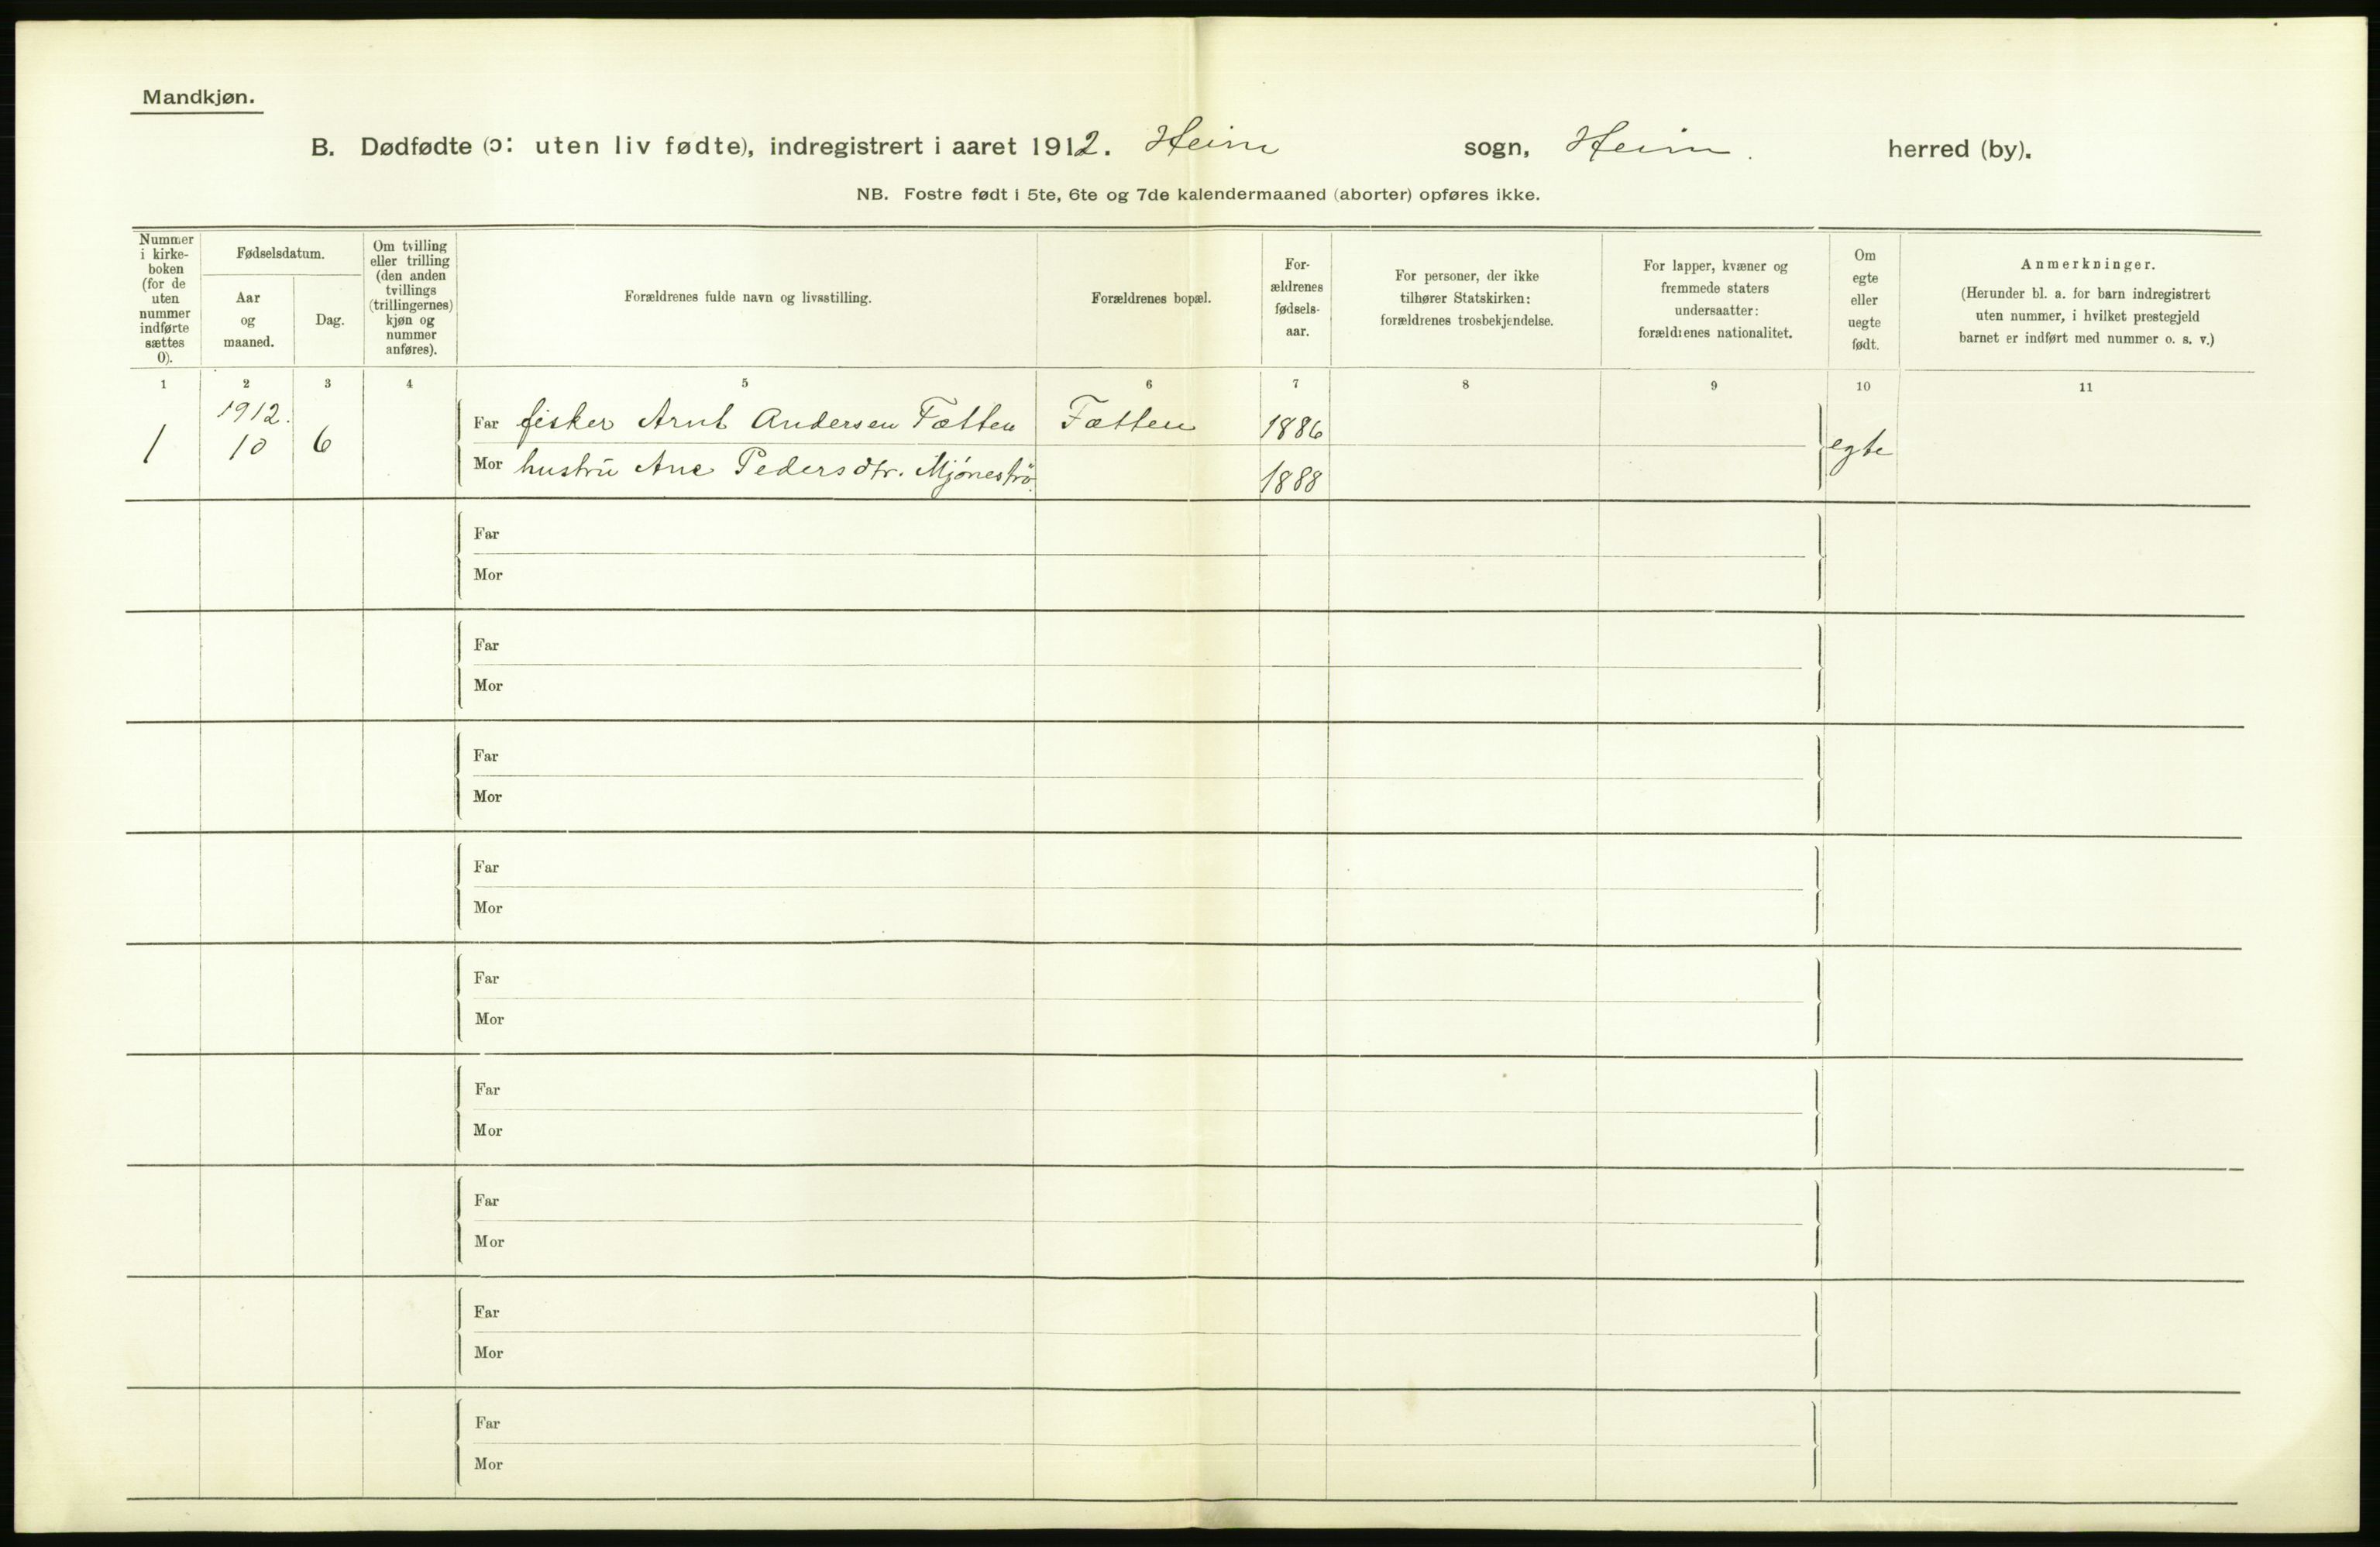 Mandkjøn.
B. Dødfødte (ɔ: uten liv fødte), indregistrert i aaret 1912. Heim sogn, Heim. herred (by).
NB. Fostre født i 5te, 6te og 7de kalendermaaned (aborter) opføres ikke.
Nummer
i kirke-
boken
(for de
uten
nummer
indførte
sættes
0).
Fødselsdatum.
Aar
og
maaned.
Dag.
Om tvilling
eller trilling
(den anden
tvillings
(trillingernes)
kjøn og
nummer
anføres).
Forældrenes fulde navn og livsstilling.
Forældrenes bopæl.
For-
ældrenes
fødsels-
aar.
For personer, der ikke
tilhører Statskirken:
forældrenes trosbekjendelse.
For lapper, kvæner og
fremmede staters
undersaatter:
forældrenes nationalitet.
Om
egte
eller
uegte
født.
Anmerkninger.
(Herunder bl. a. for barn indregistrert
uten nummer, i hvilket prestegjeld
barnet er indført med nummer o. s. v.)
1 2 3 4 5 6 7 8 9 10 11
1912.
1 10 6
Far fisker Arnt Andersen Fætten Fætten 1886
egte
Mor hustru Ane Pedersdtr. Mjóneströ. 1888
Far
Mor
Far
Mor
Far
Mor
Far
Mor
Far
Mor
Far
Mor
Far
Mor
Far
Mor
Far
Mor